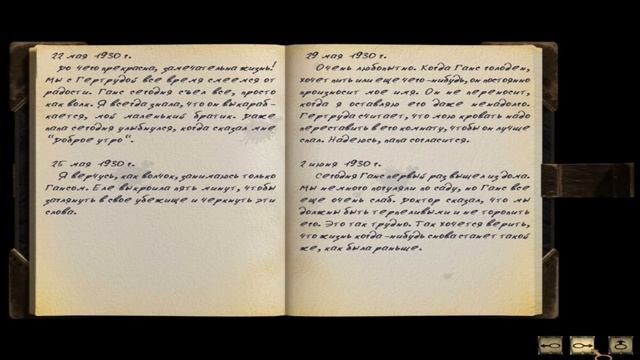 22 мая 1930 г.
До чего прекрасна, замечательна жизнь!
Мы с Гертрудой все время смеемся от
радости. Ганс сегодня съел все, просто
как волк. Я всегда знала, что он выкараб-
кается, мой маленький братик. Даже
папа сегодня улыбнулся, когда сказал мне
"Доброе утро".
25 мая 1930 г.
Я верчусь, как волчок, занимаюсь только
Гансом. Еле выкроила пять минут, чтобы
заглянуть в свое убежище и черкнуть эти
слова.
29 мая 1930 г.
Очень любопытно. Когда Ганс голоден,
хочет пить или еще чего-нибудь, он постоянно
произносит мое имя. Он не переносит,
когда я оставляю его даже ненадолго.
Гертруда считает, что мою кровать надо
переставить в его комнату, чтобы он лучше
спал. Надеюсь, папа согласится.
2 июня 1930 г.
Сегодня Ганс первый раз вышел из дома.
Мы немного погуляли по саду, но Ганс все
еще очень слаб. Доктор сказал, что мы
должны быть терпеливыми и не торопить
его. Это так трудно. Так хочется верить,
что жизнь когда-нибудь снова станет такой
же, как была раньше.